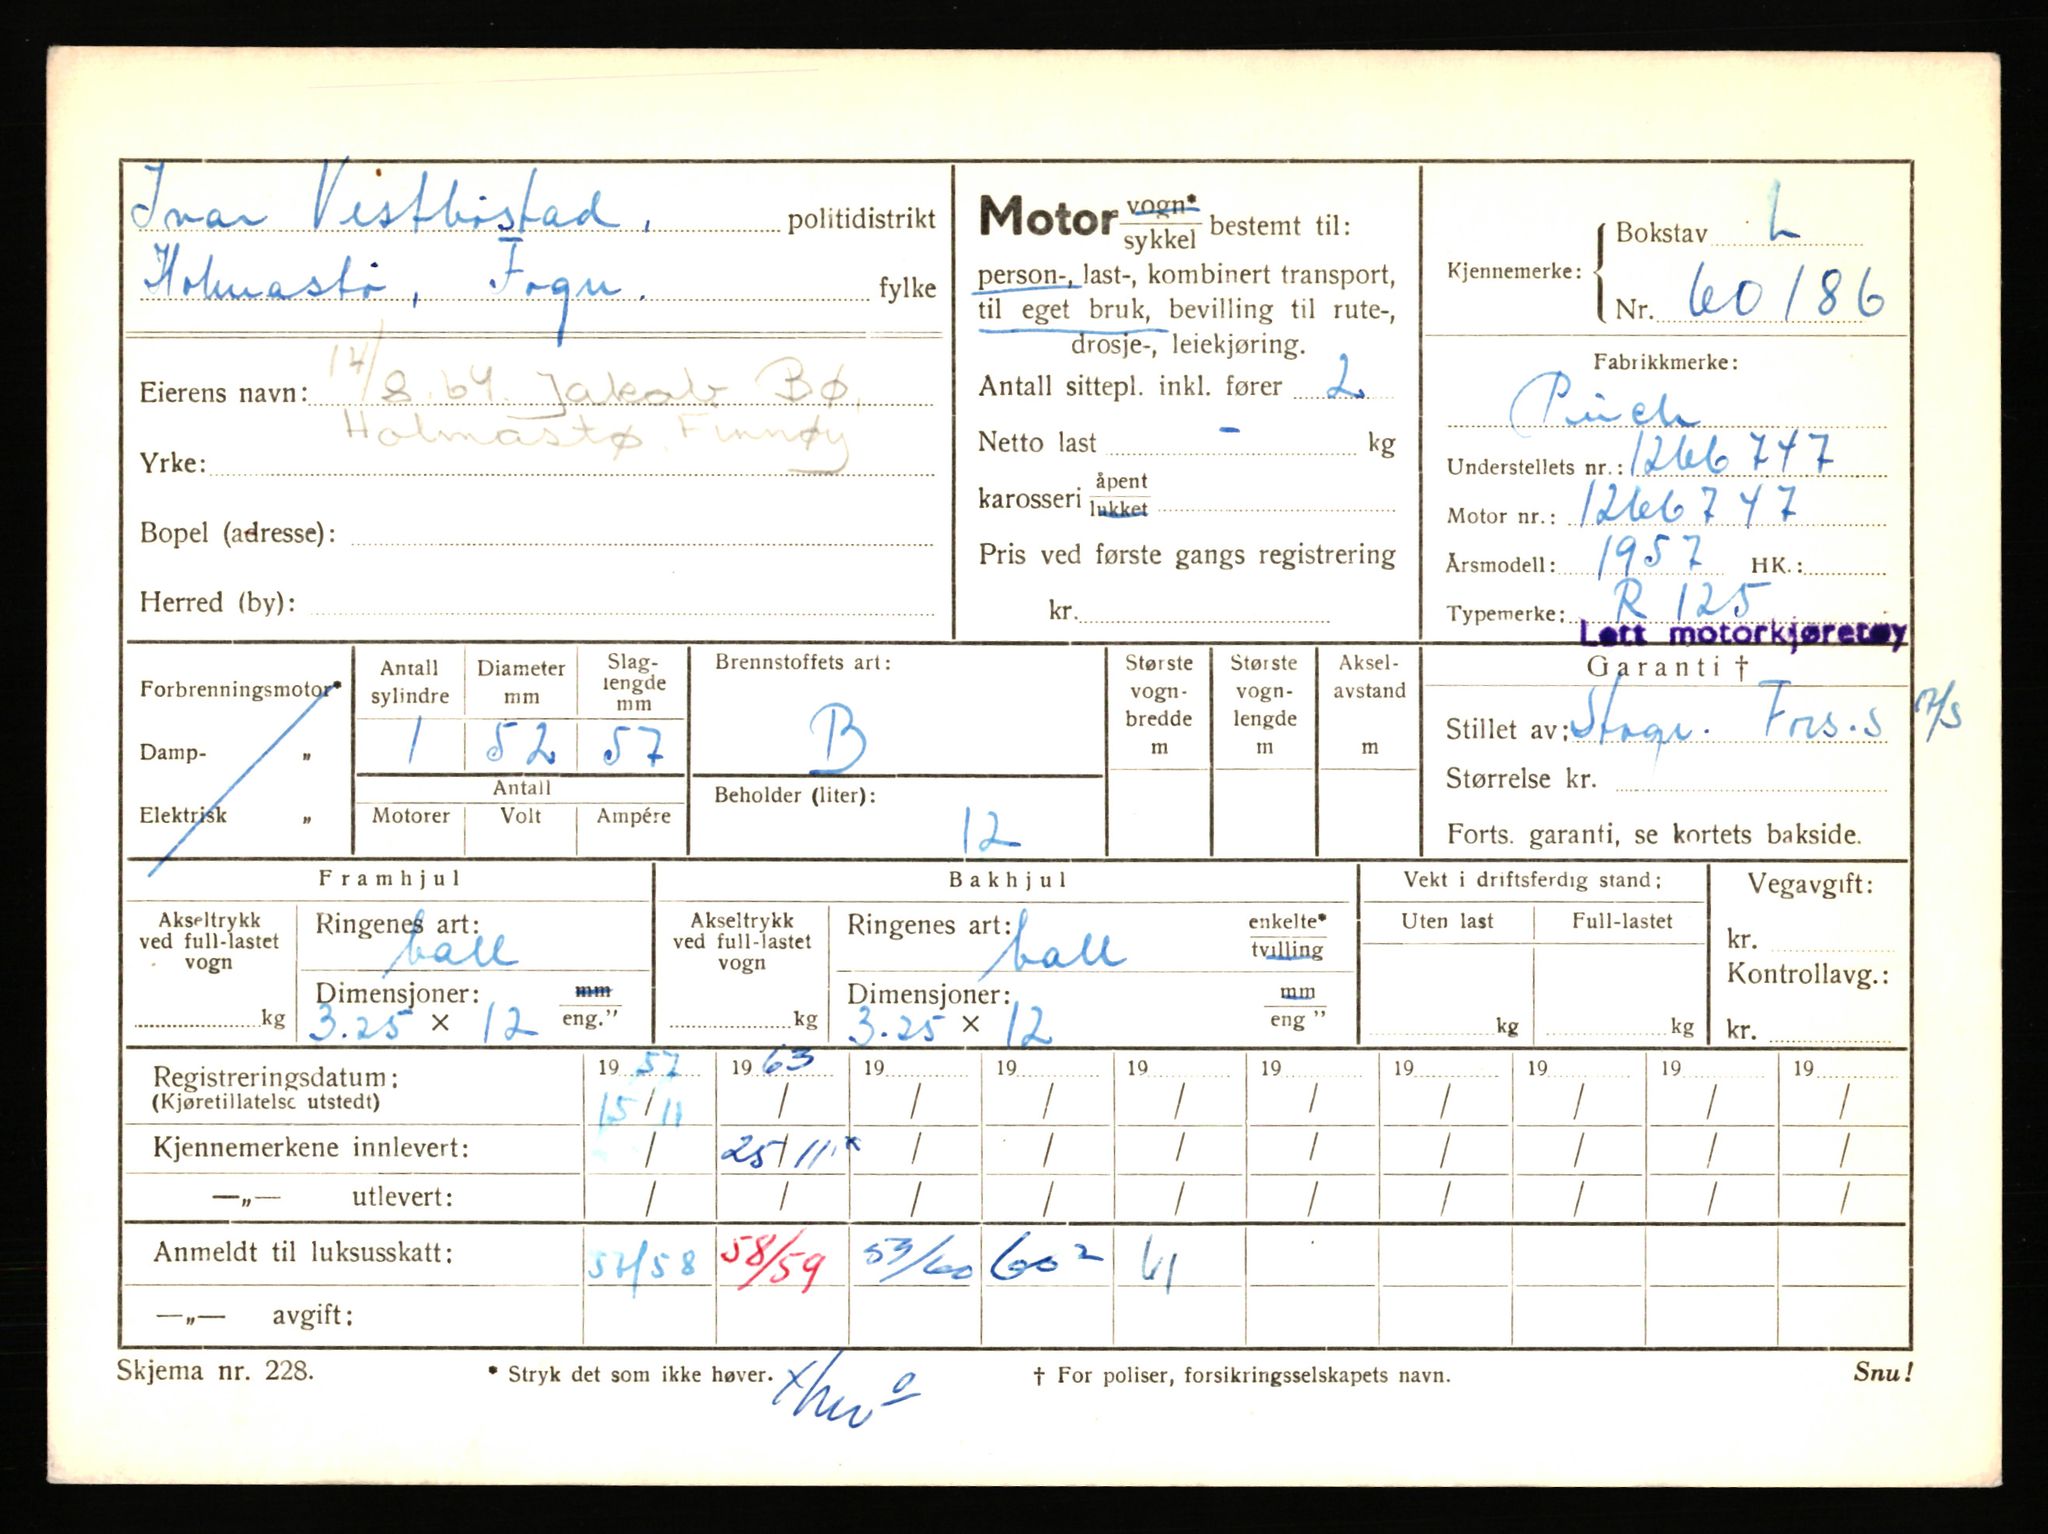 Ivar Vestbøstad, politidistrikt
Holmastø, Fogn. fylke
Eierens navn: 14/8.64. Jakob Bø,
Holmastø. Finnøy
Yrke:
Bopel (adresse):
Herred (by):
Motor vogn* sykkel bestemt til:
person-, last-, kombinert transport,
til eget bruk, bevilling til rute-,
drosje-, leiekjøring.
Antall sittepl. inkl. fører 2
Netto last - kg
karosseri åpent lukket
Pris ved første gangs registrering
kr.
Kjennemerke: Bokstav L
Nr. 60186
Fabrikkmerke:
Puch
Understellets nr.: 1266747
Motor nr.: 1266747
Årsmodell: 1957 HK.:
Typemerke: R 125
Lett motorkjøretøy
Forbrenningsmotor*
Damp- „
Elektrisk „
Antall sylindre 1
Diameter mm 52
Slaglengde mm 57
Antall
Motorer Volt Ampére
Brennstoffets art:
B
Beholder (liter):
12
Største vogn-bredde m
Største vogn-lengde m
Aksel-avstand m
Garanti †
Stillet av: Fors.s
Størrelse kr.
Forts. garanti, se kortets bakside.
Framhjul
Akseltrykk ved full-lastet vogn
kg
Ringenes art: ball
Dimensjoner: mm eng."
3.25 × 12
Bakhjul
Akseltrykk ved full-lastet vogn
kg
Ringenes art: ball enkelte* tvilling
Dimensjoner: mm eng "
3.25 × 12
Vekt i driftsferdig stand:
Uten last Full-lastet
kg kg
Vegavgift:
kr.
Kontrollavg.:
kr.
Registreringsdatum: 19 57 19 63 19 19 19 19 19 19 19 19
(Kjøretillatelse utstedt) 15/11 / / / / / / / / /
Kjennemerkene innlevert: / 25/11 x / / / / / / / /
—„— utlevert: / / / / / / / / / /
Anmeldt til luksusskatt: 57/58 58/59 53/60 60² 61
—„— avgift:
Skjema nr. 228. * Stryk det som ikke høver. † For poliser, forsikringsselskapets navn. Snu!